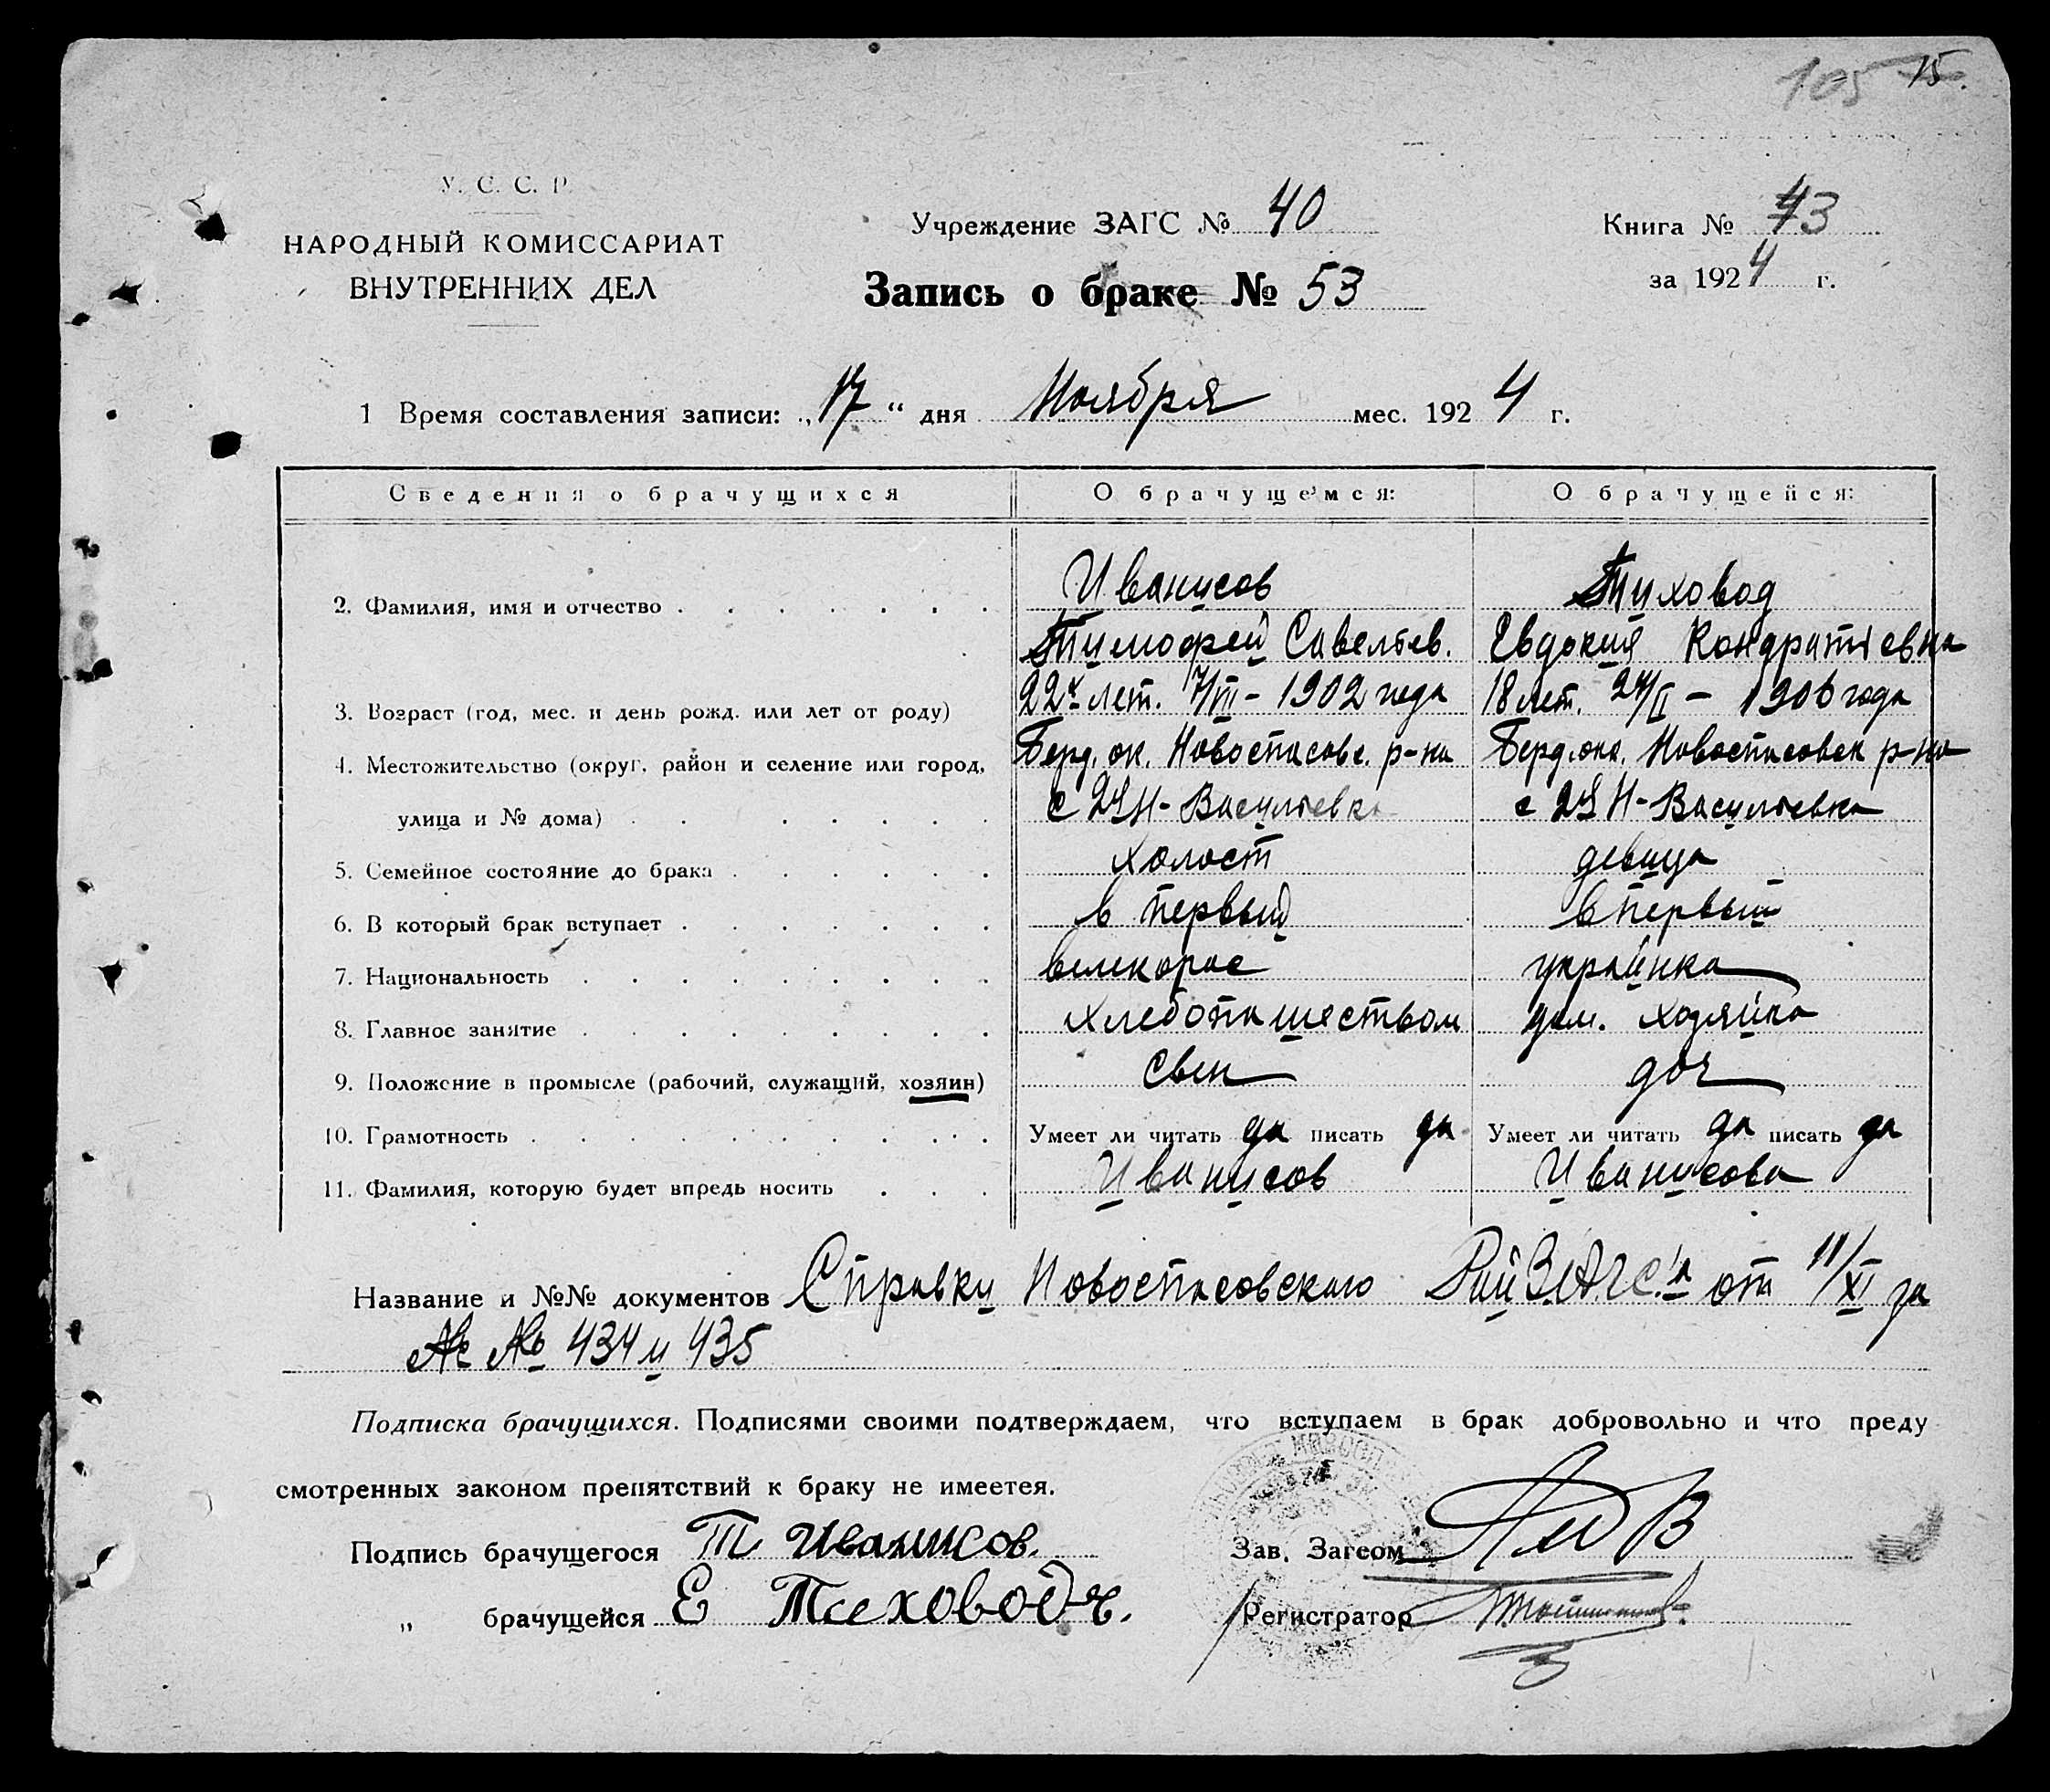 105 15.
У. С. С. Р.
НАРОДНЫЙ КОМИССАРИАТ
ВНУТРЕННИХ ДЕЛ
Учреждение ЗАГС № 40
Книга № 43
за 1924 г.
Запись о браке № 53
1 Время составления записи: „17“ дня Ноября мес. 1924 г.
Сведения о брачущихся О брачущемся: О брачущейся:
Иванисов Тиховод
2. Фамилия, имя и отчество
Тимофей Савельев. Евдокия Кондратіевна
22х лет. 7/III - 1902 года 18 лет. 24/II - 1906 года
3. Возраст (год, мес. и день рожд. или лет от роду)
Берд. ок. Новоспасовс. р-на Берд. окр. Новоспасовск р-на
4. Местожительство (округ, район и селение или город,
улица и № дома) с 2я Н-Васильевка с 2я Н-Васильевка
5. Семейное состояние до брака холост девица
6. В который брак вступает в первый в первый
7. Национальность великорос украинка
8. Главное занятие хлебопашеством дом. хозяйка
9. Положение в промысле (рабочий, служащий, хозяин) свен доч
10. Грамотность Умеет ли читать да писать да Умеет ли читать да писать да
11. Фамилия, которую будет впредь носить Иванисов Иванисова
Название и №№ документов Справки Новоспасовского РайЗАГС'а от 11/XI за
№ № 434 и 435
Подписка брачущихся. Подписями своими подтверждаем, что вступаем в брак добровольно и что преду
смотренных законом препятствий к браку не имеетея.
Подпись брачущегося Т Иванисов.
Зав. Загсом
„ брачущейся Е Тиховодч.
Регистратор